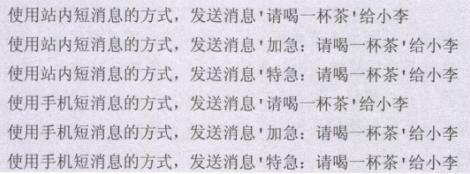 使用站内短消息的方式，发送消息'请喝一杯茶'给小李
使用站内短消息的方式，发送消息'加急：请喝一杯茶'给小李
使用站内短消息的方式，发送消息'特急：请喝一杯茶'给小李
使用手机短消息的方式，发送消息'请喝一杯茶'给小李
使用手机短消息的方式，发送消息'加急：请喝一杯茶'给小李
使用手机短消息的方式，发送消息'特急：请喝一杯茶'给小李